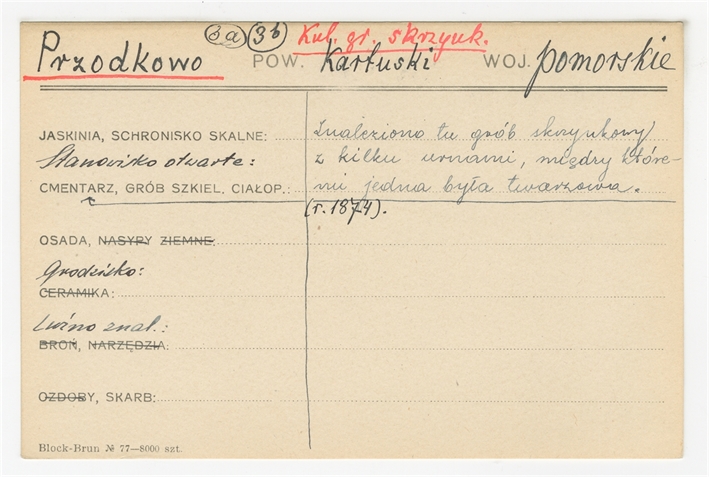 3a 3b Kul. gr. skrzynk.
Przodkowo POW. Kartuski WOJ. pomorskie
JASKINIA, SCHRONISKO SKALNE: Znaleziono tu grób skrzynkowy
Stanowisko otwarte: z kilku urnami, między które-
CMENTARZ, GRÓB SZKIEL. CIAŁOP.: mi jedna była twarzowa.
(r. 1874).
OSADA, NASYPY ZIEMNE:
Grodzisko:
CERAMIKA:
Luźno znal.:
BROŃ, NARZĘDZIA:
OZDOBY, SKARB:
Block-Brun № 77—8000 szt.